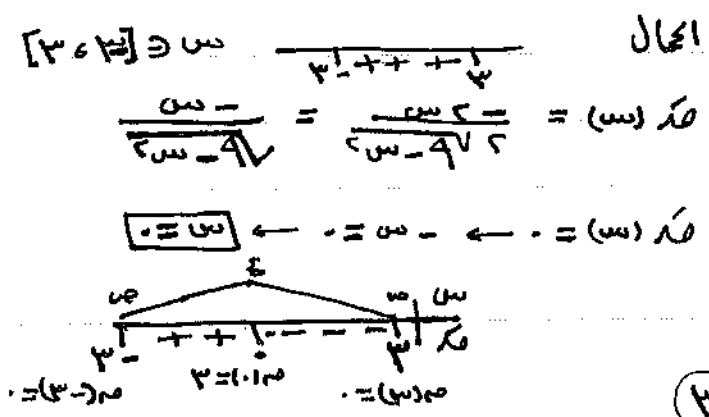 المجال ٣- + + + + ٣ س ∈ [-٣ ، ٣]
قَ (س) = -٢س / ٢√(٩ - س٢) = -س / √(٩ - س٢)
قَ (س) = ٠ ← -س = ٠ ← س = ٠
س ص ع ص
قَ ٣ - - - ٠ + + ٣-
ق(٣) = ٠ ق(٠) = ٣ ق(-٣) = ٠